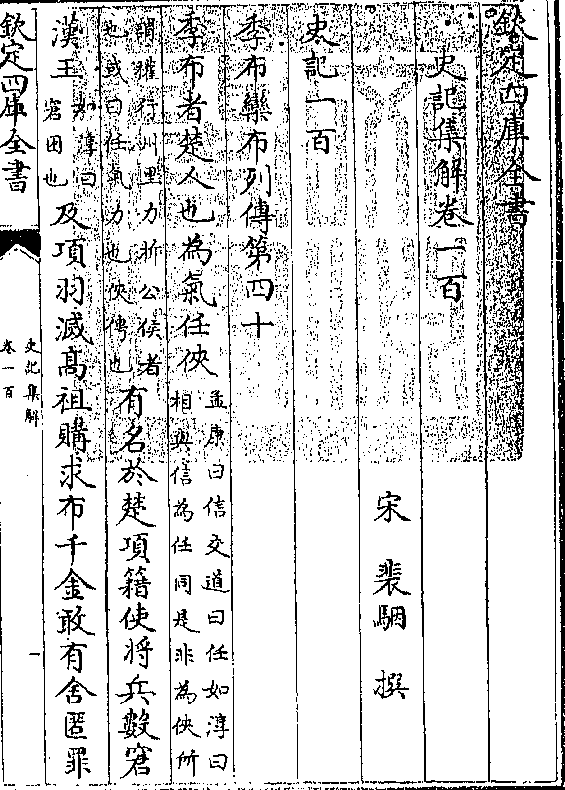 欽定四庫全書
史記集解卷一百
宋 裴駰 撰
史記一百
季布欒布列傳第四十
季布者楚人也為氣任俠孟康曰信交道曰任如淳曰
相與信為任同是非為俠所
謂權行州里力折公侯者
也或曰任氣力也俠俜也有名於楚項籍使將兵數窘
漢王如淳曰
窘困也及項羽滅髙祖購求布千金敢有舍匿罪
欽定四庫全書
史記集解
卷一百
一